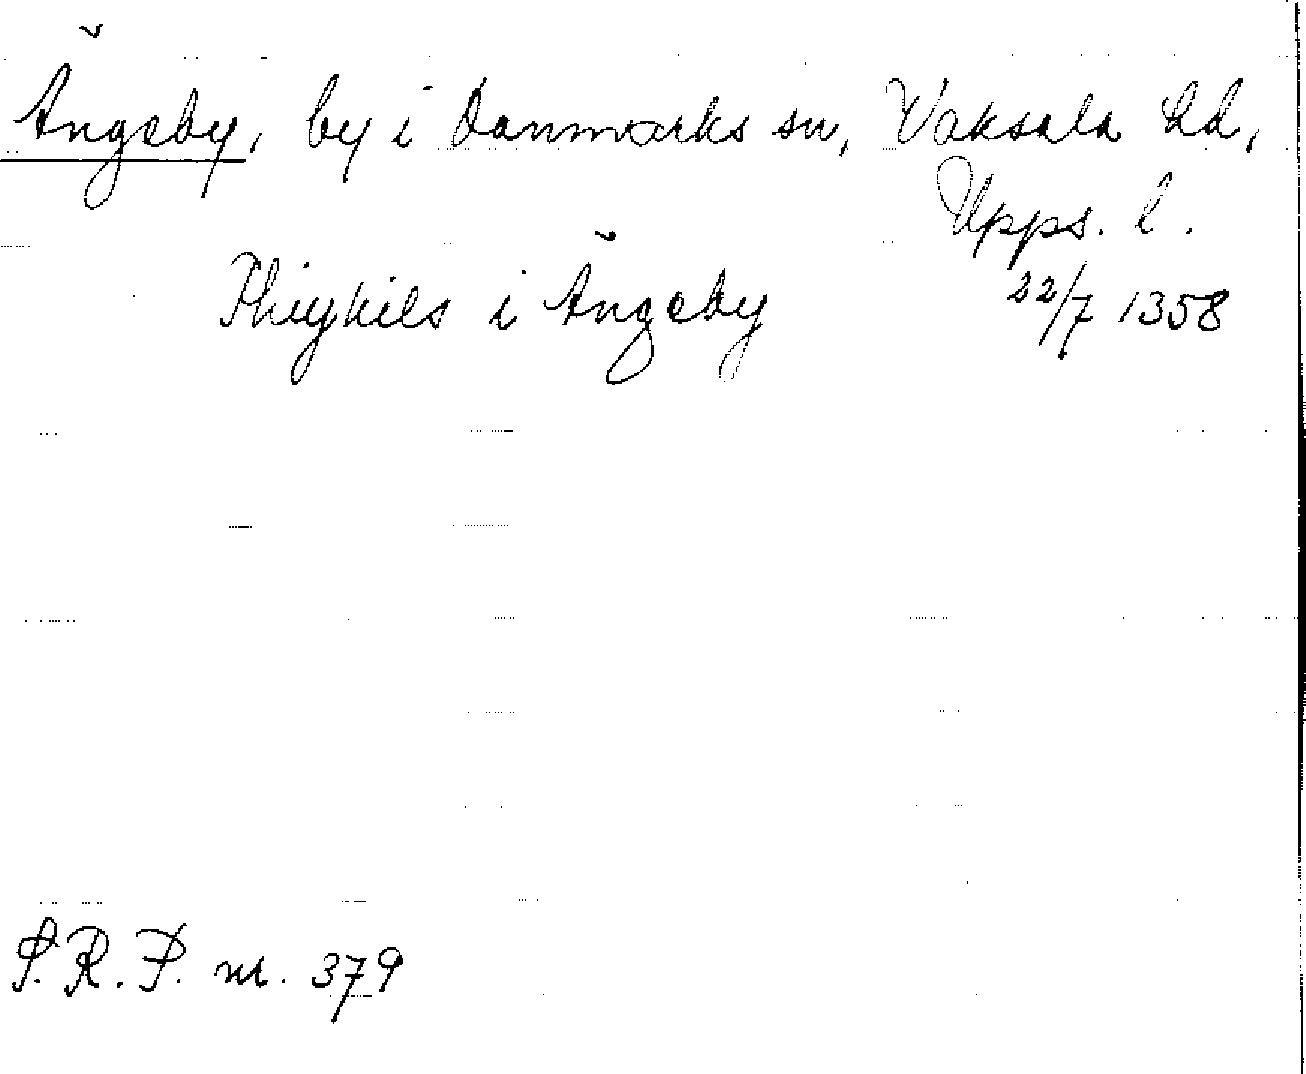 Ängeby, by i Danmarks sn, Vaksala hd,
Upps. l.
i Ängeby 22/7 1358
S.R.P. nr. 379